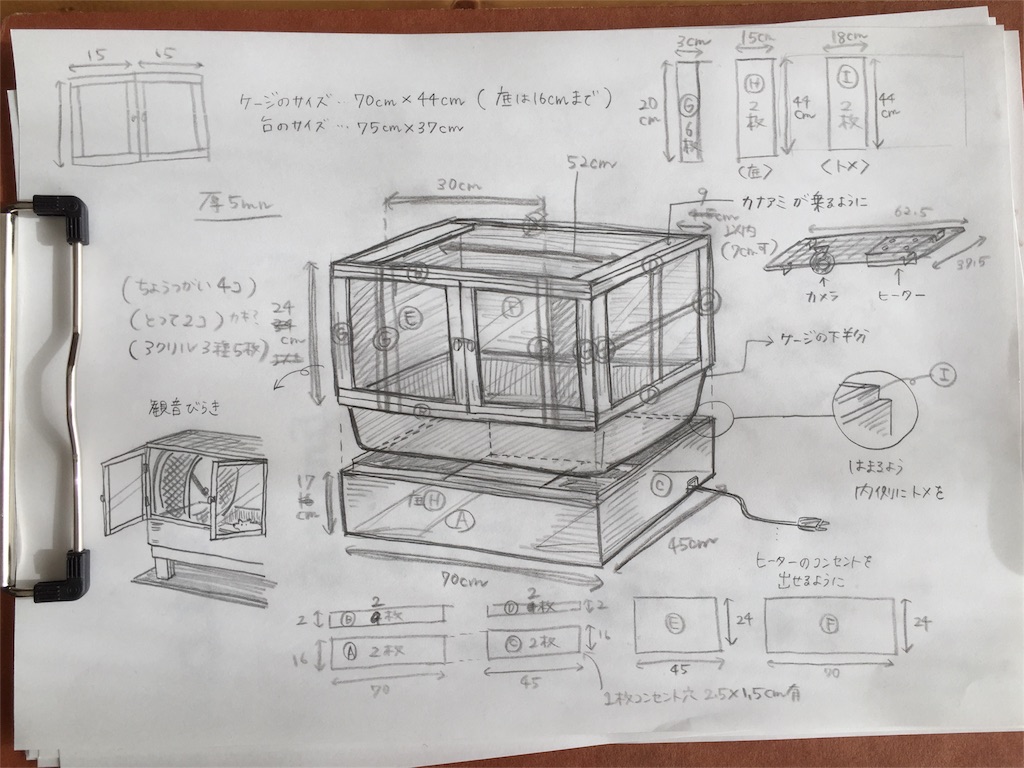 15 15
ケージのサイズ…70cm×44cm(底は16cmまで)
台のサイズ…75cm×37cm
3cm
20cm
G
6枚
15cm
H
2枚
44cm
(底)
18cm
I
2枚
44cm
(トメ)
厚5mm
30cm
52cm
9
cm
以内
(7cmす)
カナアミが乗るように
62.5
39.5
カメラ
ヒーター
(ちょうつがい4コ)
(とって2コ)
(アクリル3種5枚)
24
cm
観音びらき
E
F
G
G
ケージの下半分
I
はまるよう
内側にトメを
17
cm
底H
A
C
70cm
45cm
ヒーターのコンセントを
出せるように
2
B
2
枚
16
A 2枚
70
D
2
枚
2
C 2枚
16
45
E
24
45
F
24
70
1枚コンセント穴 2.5×1.5cm有